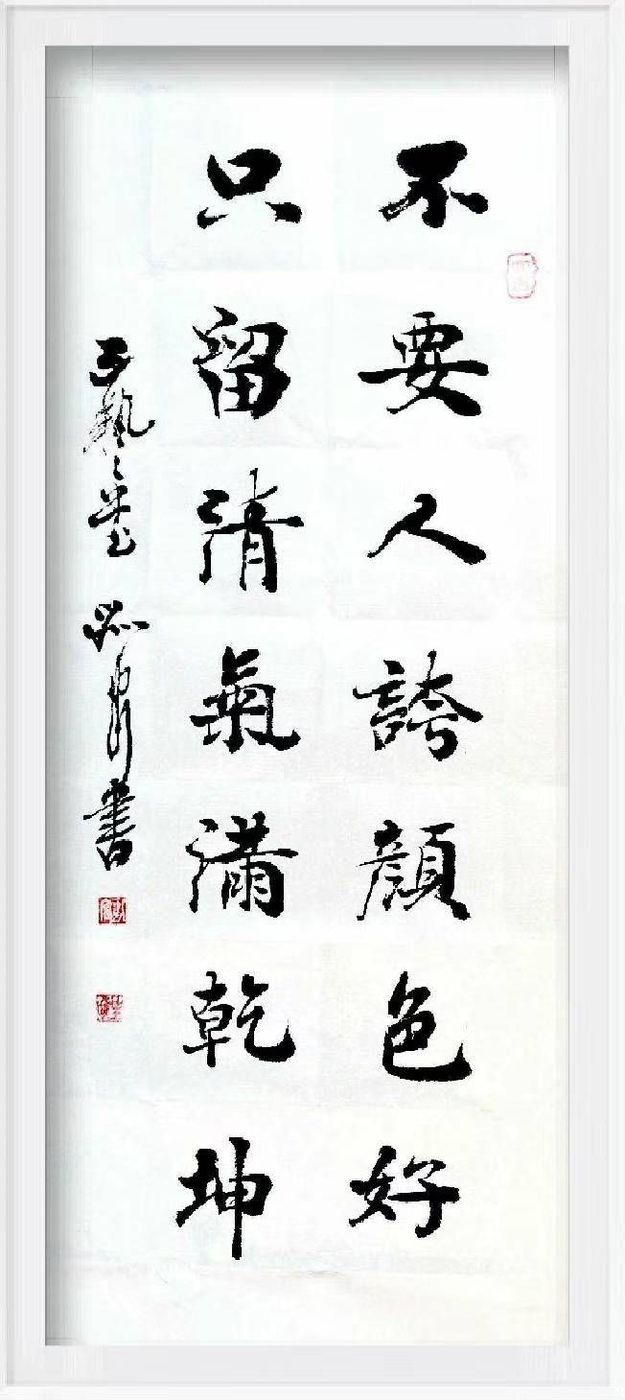 不要人誇顏色好
只留清氣滿乾坤
書